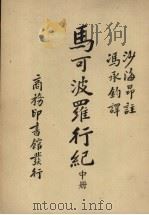 沙海昂註
馮承鈞譯
馬可波羅行紀
中册
商務印書館發行